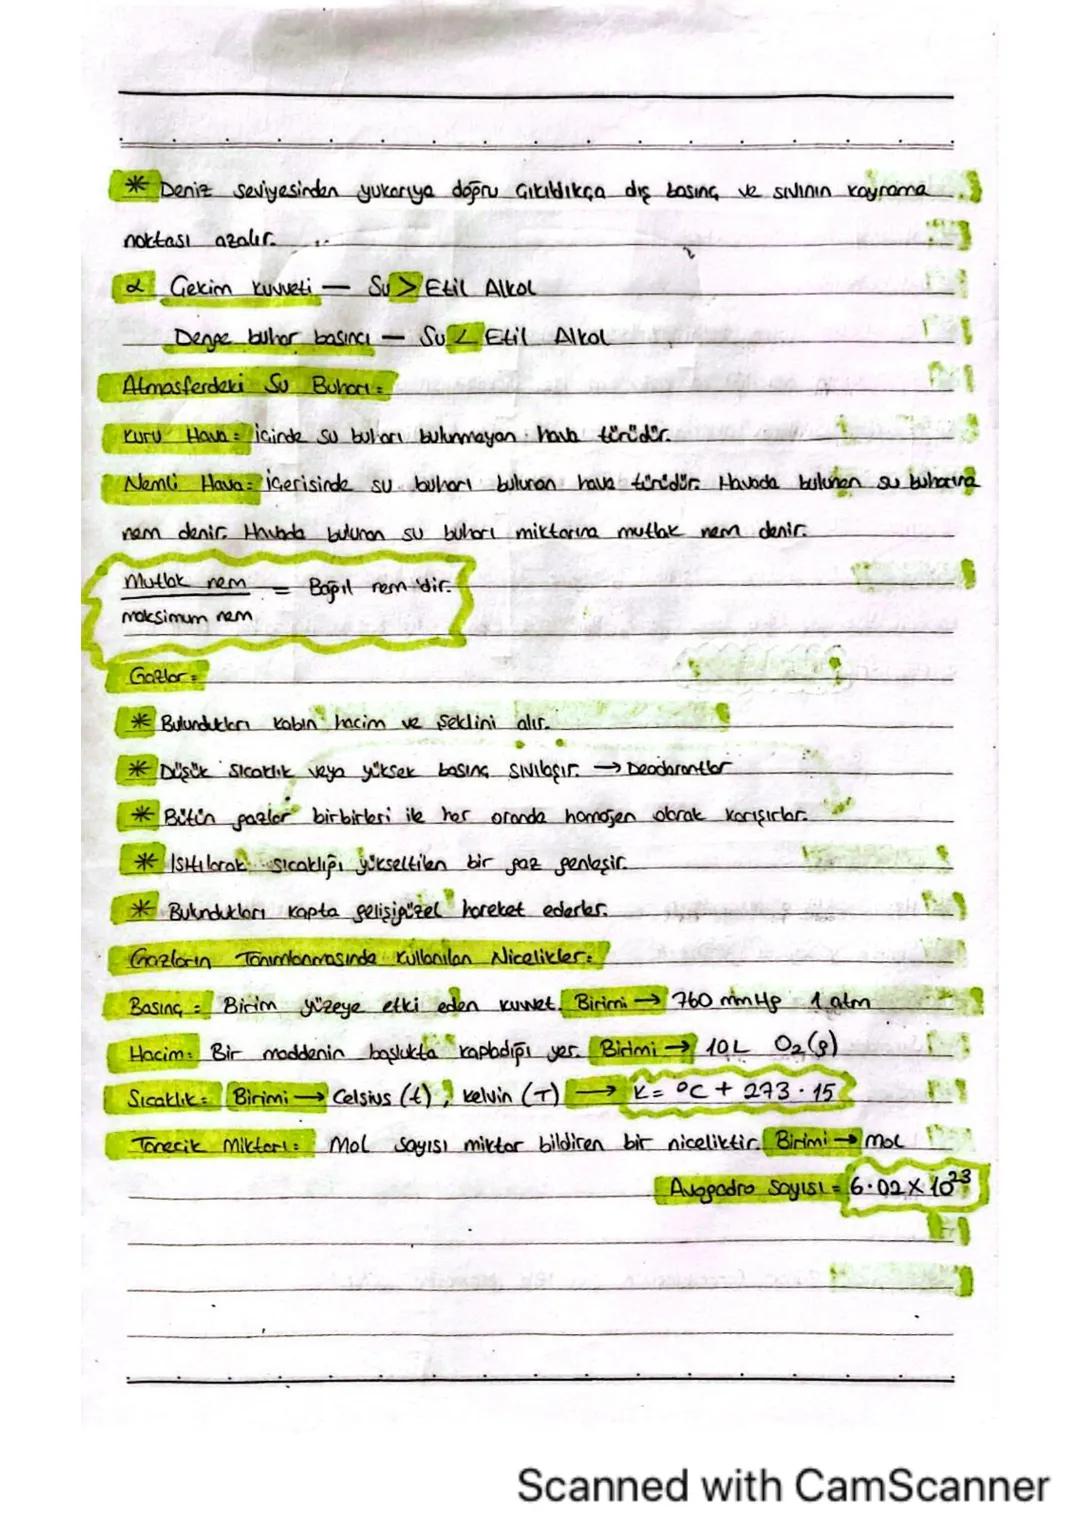 * Deniz seviyesinden yukarıya doğru Çıkıldıkça dış basınç ve sıvının kaynama
noktası azalır.
α Çekim kuvveti — Su > Etil Alkol
Denge buhar basıncı — Su < Etil Alkol
Atmosferdeki Su Buharı:
Kuru Hava: İçinde su buharı bulunmayan hava türüdür.
Nemli Hava: İçerisinde su buharı bulunan hava türüdür. Havada bulunan su buharına
nem denir. Havada bulunan su buharı miktarına mutlak nem denir.
Mutlak nem = Bağıl nem'dir.
maksimum nem
Gazlar:
* Bulundukları kabın hacim ve şeklini alır.
* Düşük sıcaklık veya yüksek basınç sıvılaşır. → Deodorantlar
* Bütün gazlar birbirleri ile her oranda homojen olarak karışırlar.
* Isıtılarak sıcaklığı yükseltilen bir gaz genleşir.
* Bulundukları kapta gelişigüzel hareket ederler.
Gazların Tanımlanmasında Kullanılan Nicelikler:
Basınç: Birim yüzeye etki eden kuvvet. Birimi → 760 mmHg 1 atm
Hacim: Bir maddenin boşlukta kapladığı yer. Birimi → 10L O2(g)
Sıcaklık: Birimi → Celsius (t), kelvin (T) → K = °C + 273.15
Tanecik Miktarı: Mol sayısı miktar bildiren bir niceliktir. Birimi → mol
Avogadro Sayısı = 6.02 X 10²³
Scanned with CamScanner